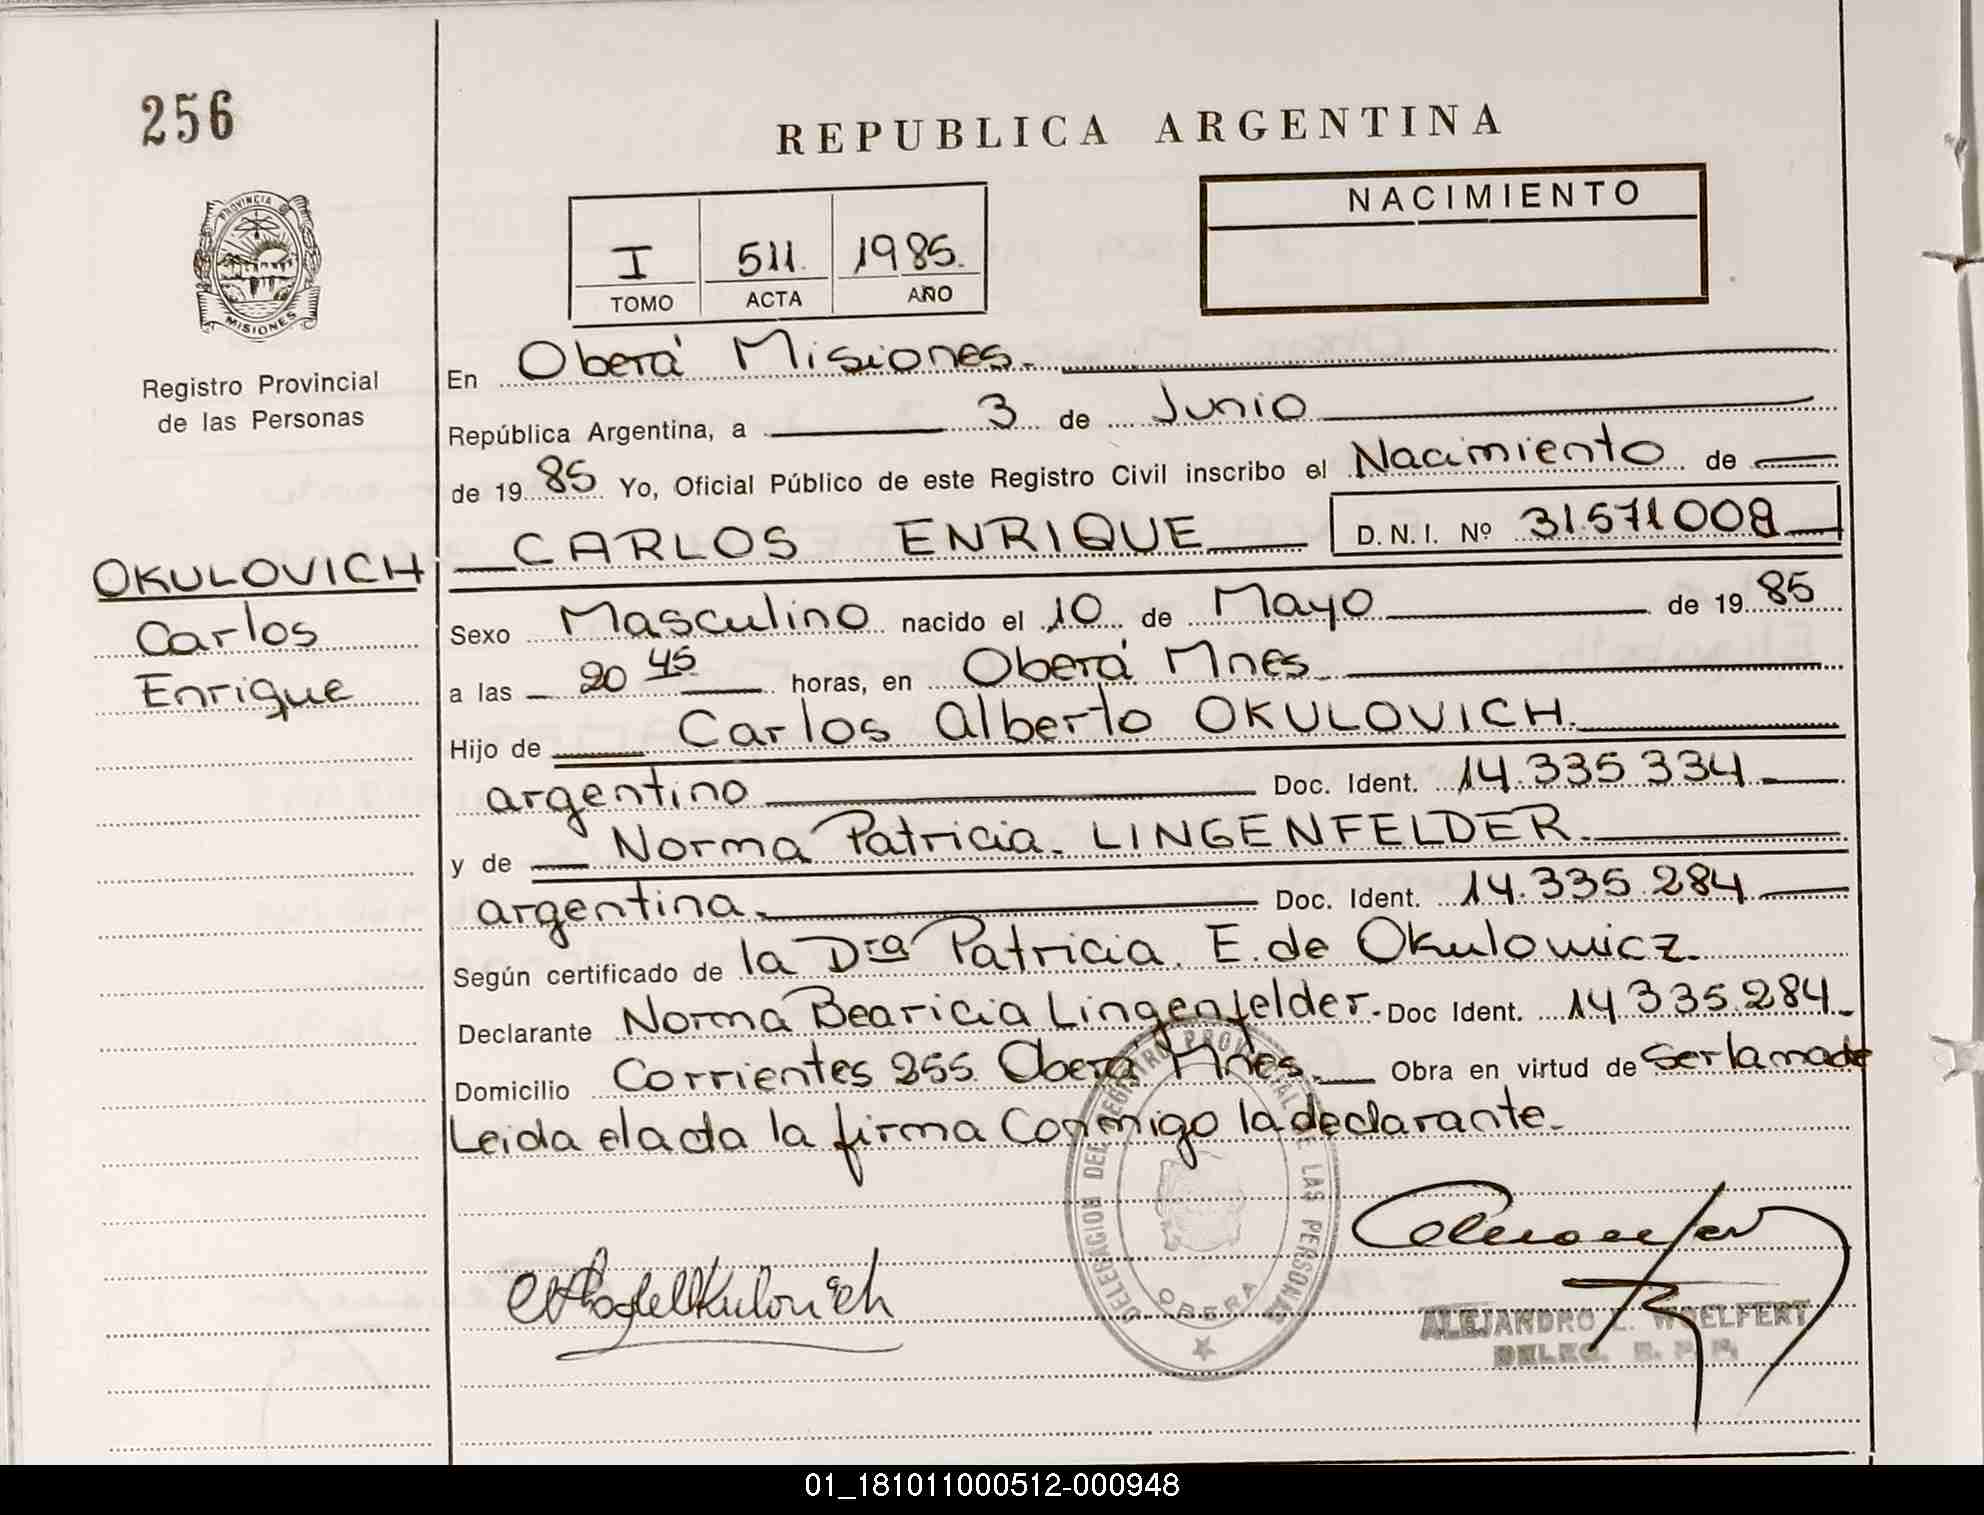 256
REPUBLICA ARGENTINA
NACIMIENTO
I 511. 1985.
TOMO ACTA AÑO
PROVINCIA DE
MISIONES
Registro Provincial
de las Personas
En Oberá Misiones.
República Argentina, a 3 de Junio
de 19 85 Yo, Oficial Público de este Registro Civil inscribo el Nacimiento de
OKULOVICH
Carlos
Enrique
CARLOS ENRIQUE D.N.I. Nº 31.571008
Sexo Masculino nacido el 10 de Mayo de 19 85
a las 20 45 horas, en Oberá Mnes.
Hijo de Carlos Alberto OKULOVICH.
argentino Doc. Ident. 14.335.334.
y de Norma Patricia. LINGENFELDER.
argentina. Doc. Ident. 14.335.284
Según certificado de la Dra Patricia. E. de Okulowicz.
Declarante Norma Bearicia Lingenfelder. Doc Ident. 14.335.284.
Domicilio Corrientes 255. Oberá Mnes. Obra en virtud de Ser la madre
Leida el acta la firma Conmigo la declarante.
DELEGACION DEL REGISTRO PROVINCIAL DE LAS PERSONAS
OBERA
ALEJANDRO L. WOELFERT
DELEG. R. P. P.
01_181011000512-000948